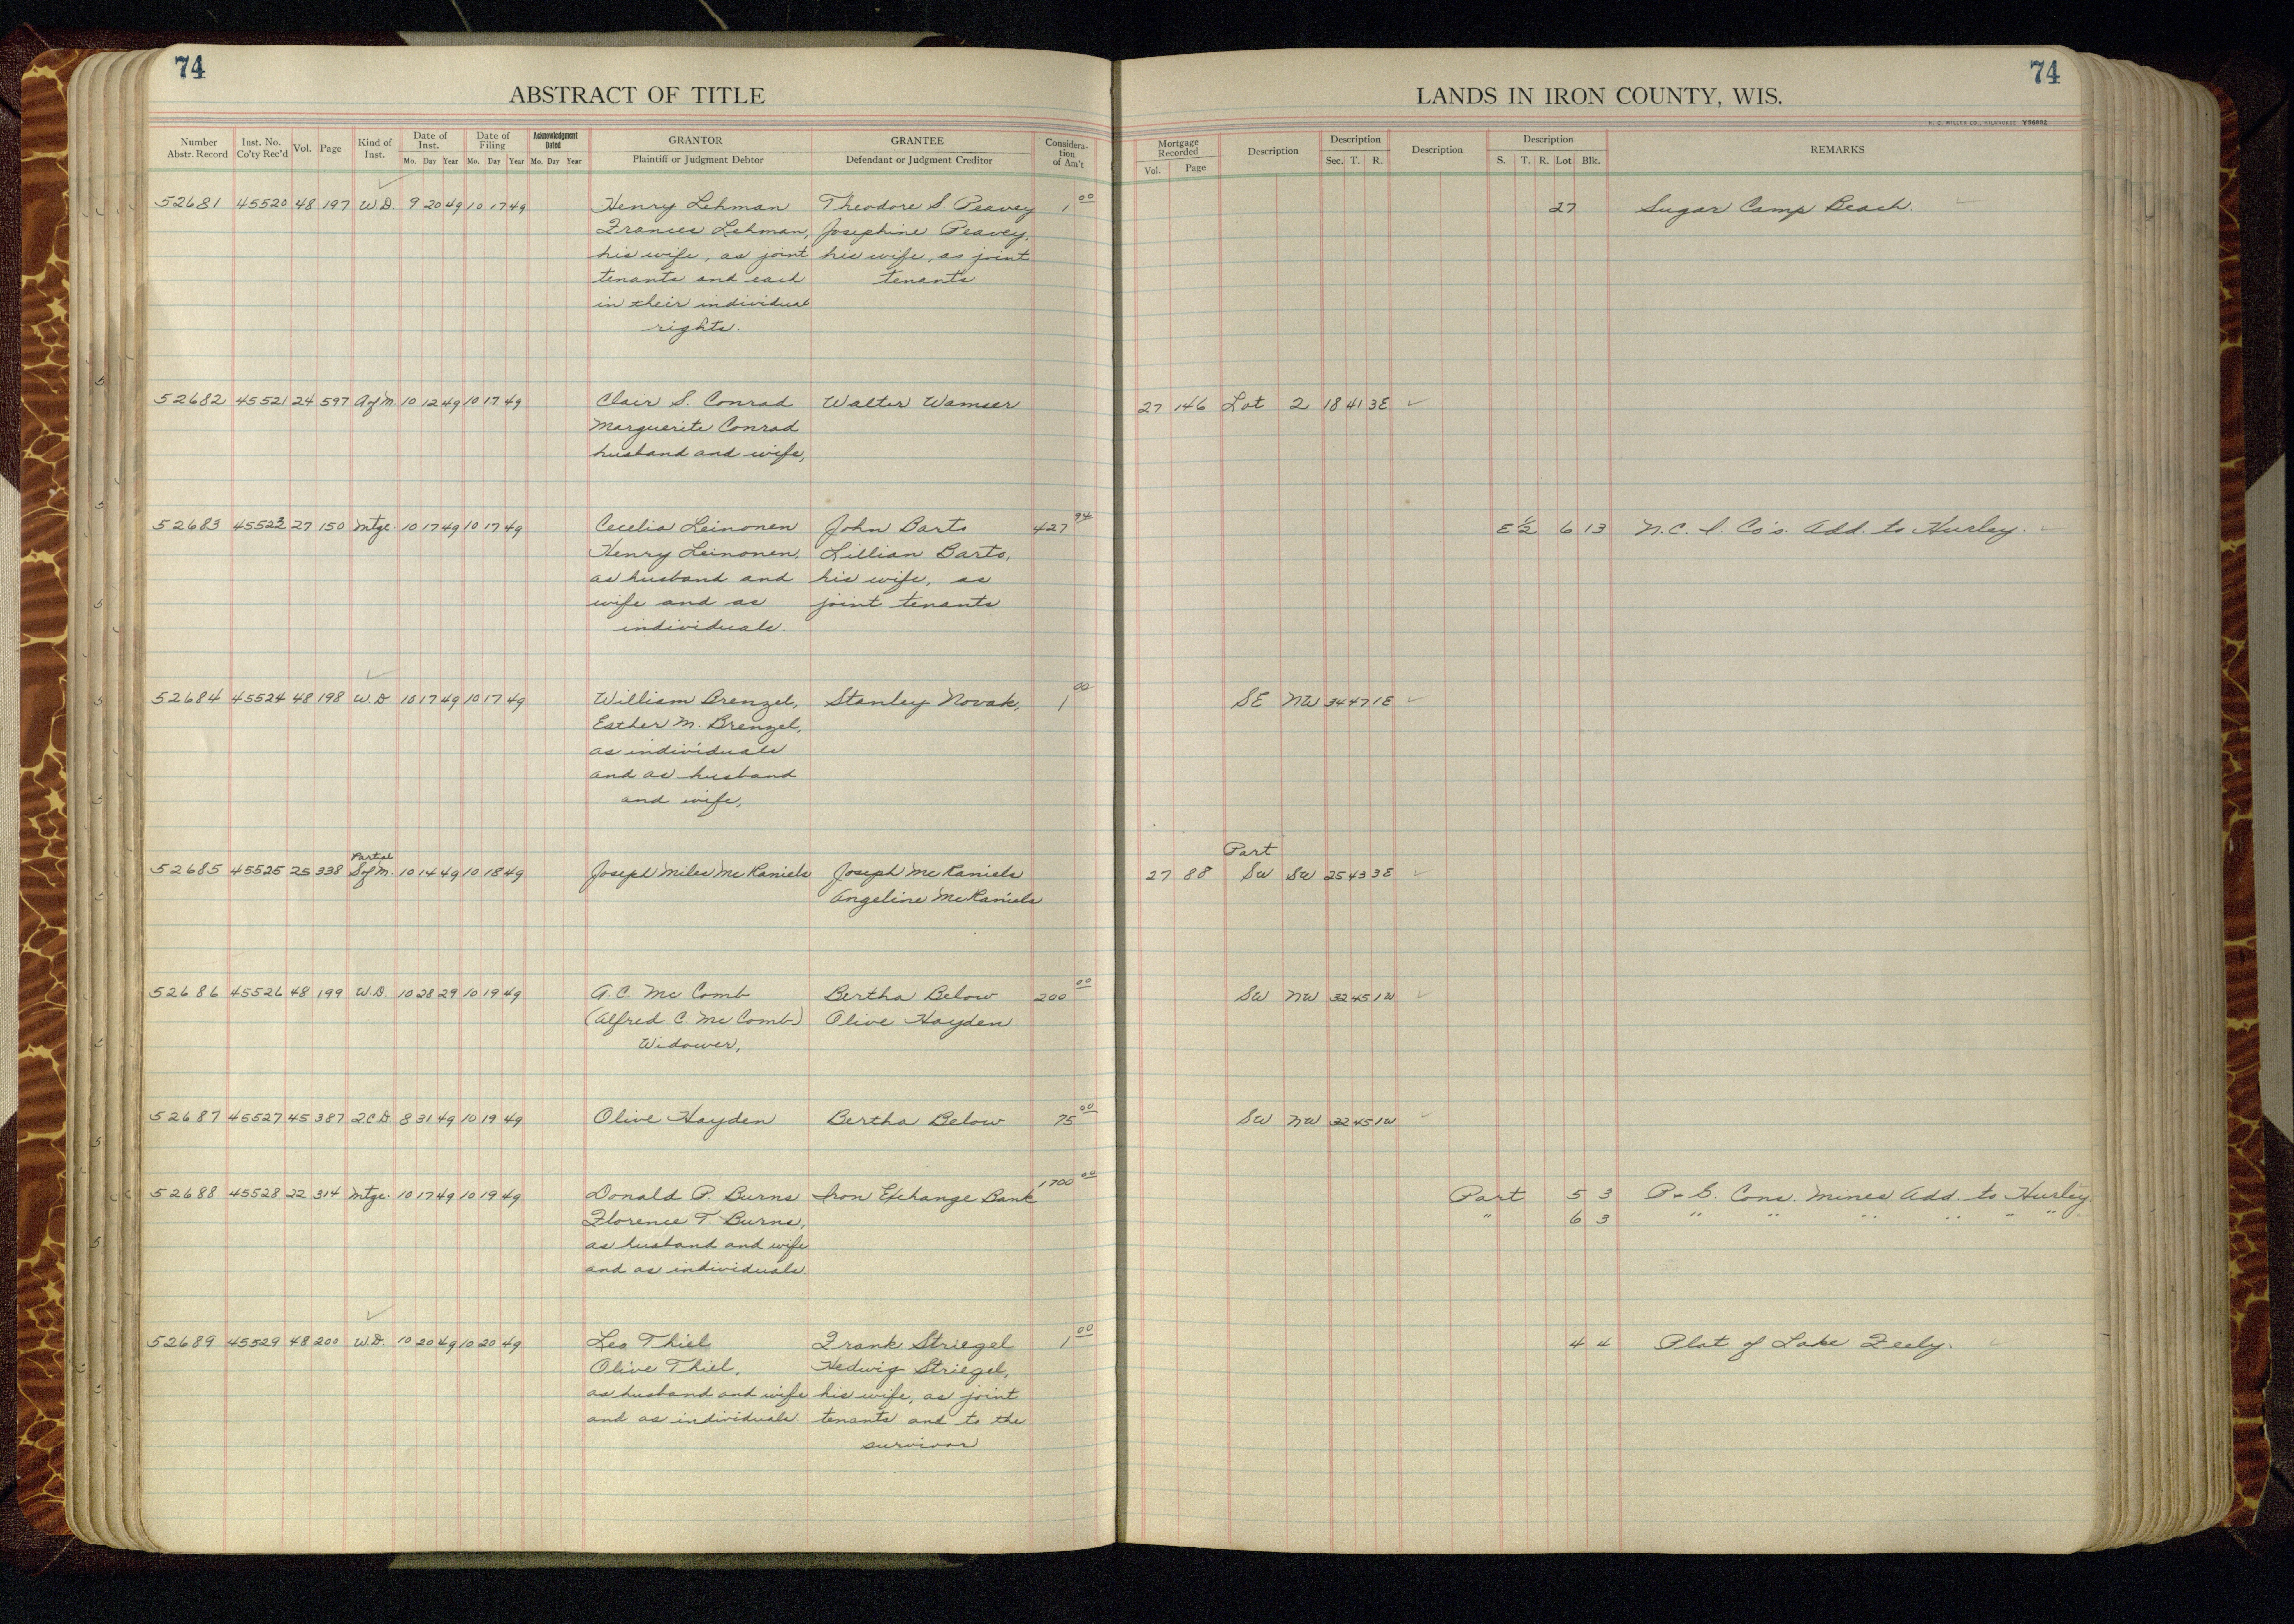 74
74
ABSTRACT OF TITLE
LANDS IN IRON COUNTY, WIS.
H. C. MILLER CO., MILWAUKEE
Number Abstr. Record Inst. No. Co'ty Rec'd Vol. Page Kind of Inst. Date of Inst. Mo. Day Year Date of Filing Mo. Day Year Acknowledgment Dated Mo. Day Year GRANTOR Plaintiff or Judgment Debtor GRANTEE Defendant or Judgment Creditor Considera-tion of Am't Mortgage Recorded Vol. Page Description Description Sec. T. R. Description Description S. T. R. Lot Blk. REMARKS
52681 45520 48 197 W.D. 9 20 49 10 17 49 Henry Lehman Theodore S. Peavey 1 00 27 Sugar Camp Beach.
Frances Lehman, Josephine Peavey,
his wife, as joint his wife, as joint
tenants and each tenants
in their individual
rights.
52682 45521 24 597 A of M. 10 12 49 10 17 49 Clair S. Conrad Walter Wamser 27 146 Lot 2 18 41 3E
Marguerite Conrad
husband and wife,
52683 45523 27 150 Mtge. 10 17 49 10 17 49 Cecelia Leinonen John Barto 427 94 E 1/2 6 13 N.C. I. Co's. Add. to Hurley.
Henry Leinonen, Lillian Barto,
as husband and his wife, as
wife and as joint tenants
individuals.
52684 45524 48 198 W.D. 10 17 49 10 17 49 William Brenzel, Stanley Novak, 1 00 SE NW 34 47 1E
Esther M. Brenzel,
as individuals
and as husband
and wife,
Partial Part
52685 45525 25 338 S of M. 10 14 49 10 18 49 Joseph Miles McRaniels Joseph McRaniels 27 88 SW SW 25 43 3E
Angeline McRaniels
52686 45526 48 199 W.D. 10 28 29 10 19 49 A.C. Mc Comb Bertha Below 200 00 SW NW 32 45 1W
(Alfred C. Mc Comb) Olive Hayden
Widower,
52687 45527 45 387 Q.C.D. 8 31 49 10 19 49 Olive Hayden Bertha Below 75 00 SW NW 32 45 1W
52688 45528 22 314 Mtge. 10 17 49 10 19 49 Donald P. Burns Iron Exchange Bank 1700 00 Part 5 3 P. & G. Cons. Mines Add. to Hurley.
Florence T. Burns, " 6 3 " " " " " "
as husband and wife
and as individuals.
52689 45529 48 200 W.D. 10 20 49 10 20 49 Leo Thiel Frank Striegel 1 00 4 4 Plat of Lake Zeely.
Olive Thiel, Hedwig Striegel,
as husband and wife his wife, as joint
and as individuals. tenants and to the
survivor